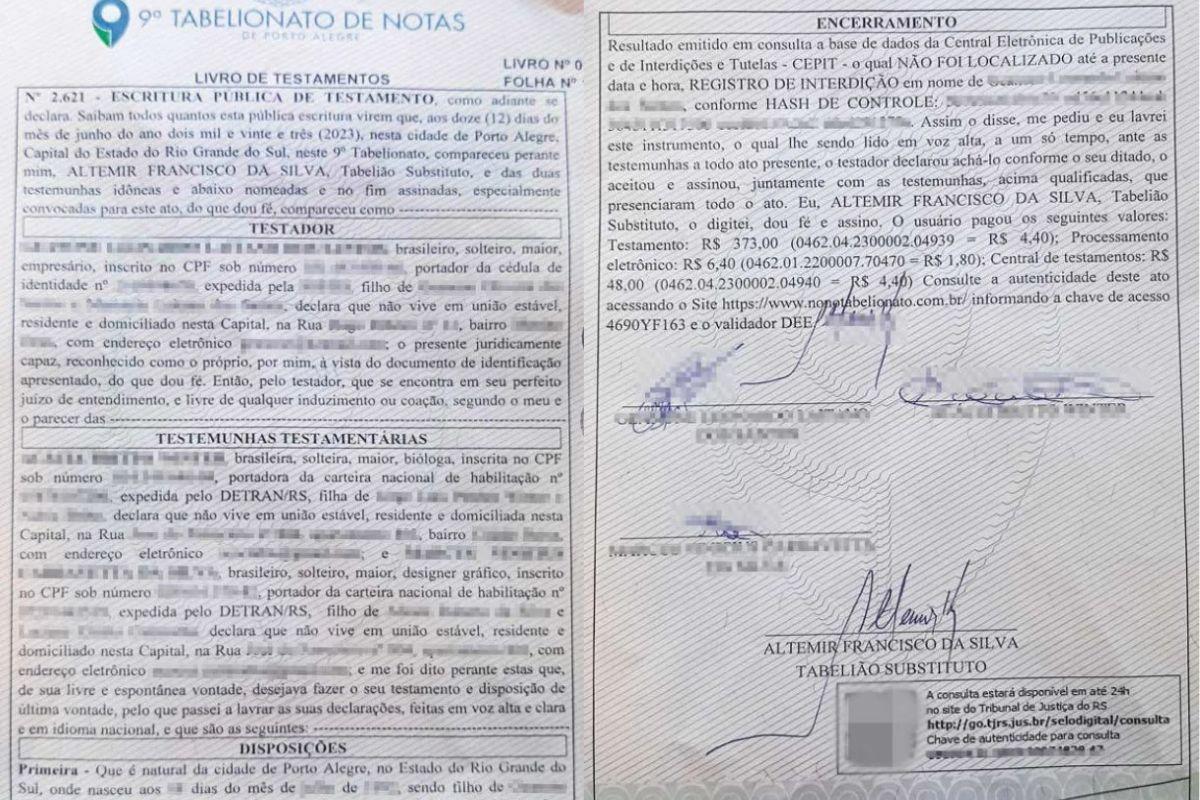 9º TABELIONATO DE NOTAS
DE PORTO ALEGRE
LIVRO Nº 0
LIVRO DE TESTAMENTOS
FOLHA Nº
Nº 2.621 - ESCRITURA PÚBLICA DE TESTAMENTO, como adiante se
declara. Saibam todos quantos esta pública escritura virem que, aos doze (12) dias do
mês de junho do ano dois mil e vinte e três (2023), nesta cidade de Porto Alegre,
Capital do Estado do Rio Grande do Sul, neste 9º Tabelionato, compareceu perante
mim, ALTEMIR FRANCISCO DA SILVA, Tabelião Substituto, e das duas
testemunhas idôneas e abaixo nomeadas e no fim assinadas, especialmente
convocadas para este ato, do que dou fé, compareceu como
TESTADOR
brasileiro, solteiro, maior,
empresário, inscrito no CPF sob número , portador da cédula de
identidade nº , expedida pela , filho de
, declara que não vive em união estável,
residente e domiciliado nesta Capital, na Rua , bairro
, com endereço eletrônico ; o presente juridicamente
capaz, reconhecido como o próprio, por mim, à vista do documento de identificação
apresentado, do que dou fé. Então, pelo testador, que se encontra em seu perfeito
juízo de entendimento, e livre de qualquer induzimento ou coação, segundo o meu e
o parecer das
TESTEMUNHAS TESTAMENTÁRIAS
, brasileira, solteira, maior, bióloga, inscrita no CPF
sob número , portadora da carteira nacional de habilitação nº
, expedida pelo DETRAN/RS, filha de
declara que não vive em união estável, residente e domiciliada nesta
Capital, na Rua , bairro
com endereço eletrônico ; e
, brasileiro, solteiro, maior, designer gráfico, inscrito
no CPF sob número , portador da carteira nacional de habilitação nº
, expedida pelo DETRAN/RS, filho de e
declara que não vive em união estável, residente e
domiciliado nesta Capital, na Rua , com
endereço eletrônico ; e me foi dito perante estas que,
de sua livre e espontânea vontade, desejava fazer o seu testamento e disposição de
última vontade, pelo que passei a lavrar as suas declarações, feitas em voz alta e clara
e em idioma nacional, e que são as seguintes:
DISPOSIÇÕES
Primeira - Que é natural da cidade de Porto Alegre, no Estado do Rio Grande do
Sul, onde nasceu aos dias do mês de de , sendo filho de
ENCERRAMENTO
Resultado emitido em consulta a base de dados da Central Eletrônica de Publicações
e de Interdições e Tutelas - CEPIT - o qual NÃO FOI LOCALIZADO até a presente
data e hora, REGISTRO DE INTERDIÇÃO em nome de
, conforme HASH DE CONTROLE:
. Assim o disse, me pediu e eu lavrei
este instrumento, o qual lhe sendo lido em voz alta, a um só tempo, ante as
testemunhas a todo ato presente, o testador declarou achá-lo conforme o seu ditado, o
aceitou e assinou, juntamente com as testemunhas, acima qualificadas, que
presenciaram todo o ato. Eu, ALTEMIR FRANCISCO DA SILVA, Tabelião
Substituto, o digitei, dou fé e assino. O usuário pagou os seguintes valores:
Testamento: R$ 373,00 (0462.04.2300002.04939 = R$ 4,40); Processamento
eletrônico: R$ 6,40 (0462.01.2200007.70470 = R$ 1,80); Central de testamentos: R$
48,00 (0462.04.2300002.04940 = R$ 4,40) Consulte a autenticidade deste ato
acessando o Site https://www.nonotabelionato.com.br/ informando a chave de acesso
4690YF163 e o validador DEE
ALTEMIR FRANCISCO DA SILVA
TABELIÃO SUBSTITUTO
A consulta estará disponível em até 24h
no site do Tribunal de Justiça do RS
http://go.tjrs.jus.br/selodigital/consulta
Chave de autenticidade para consulta